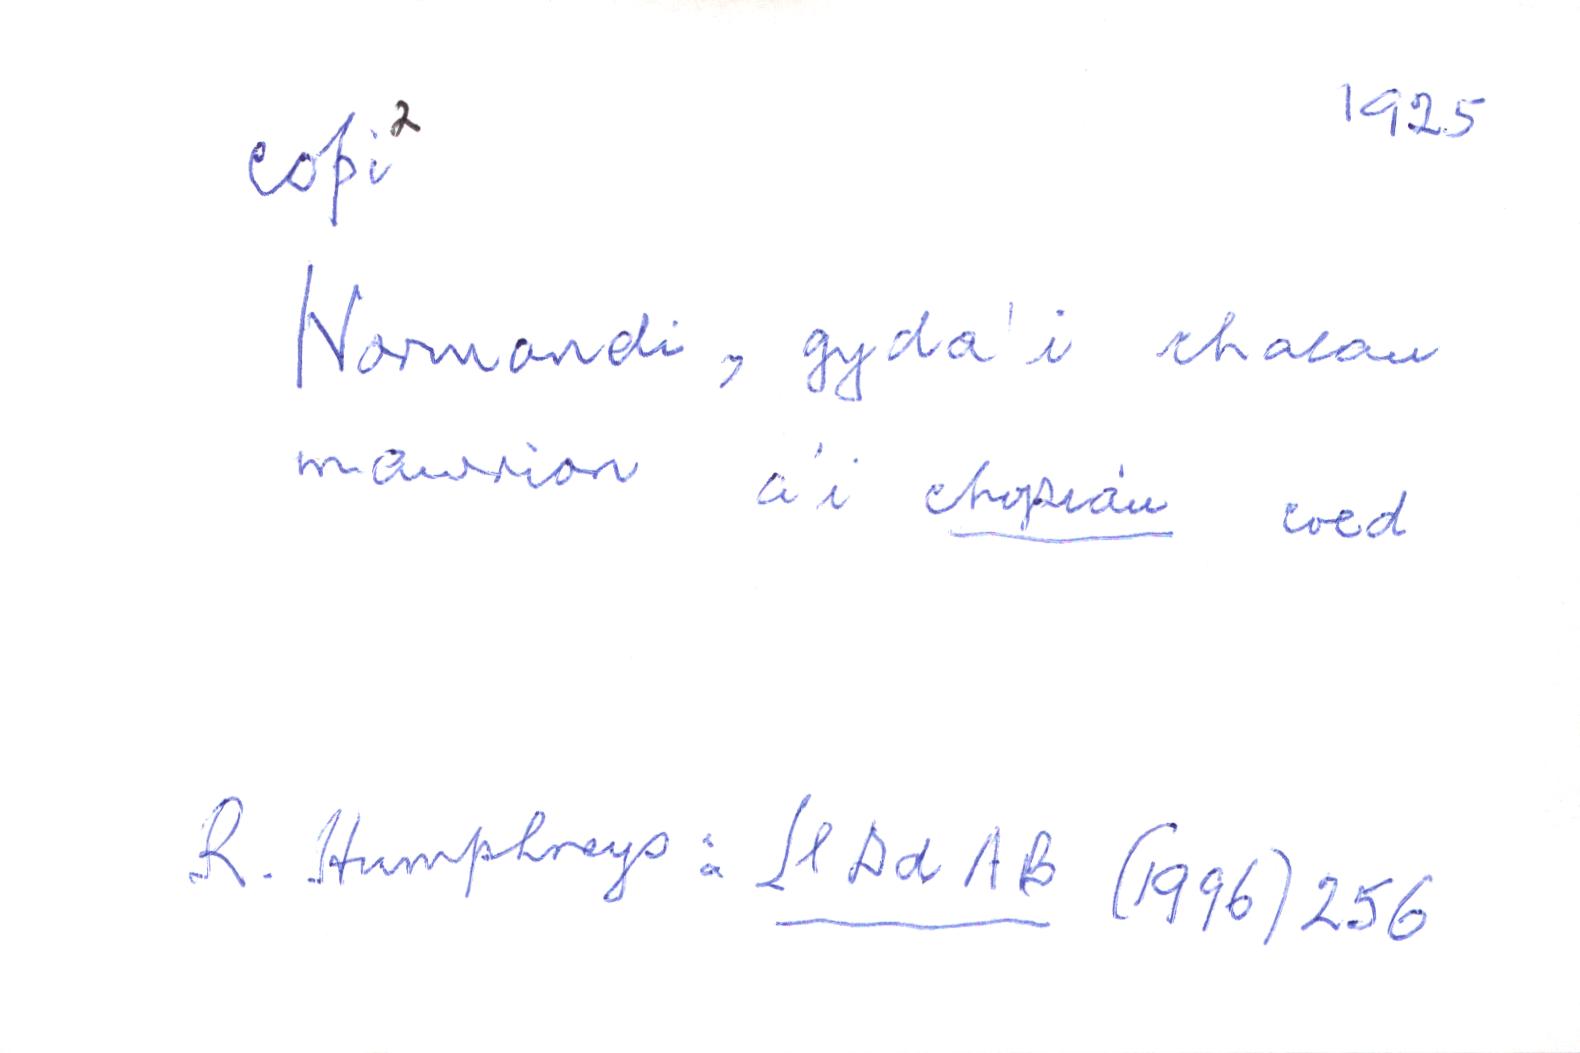 1925
copi²
Normandi, gyda'i chaeau
mawrion a'i chopïau coed
R. Humphreys: Ll Dd A B (1996) 256